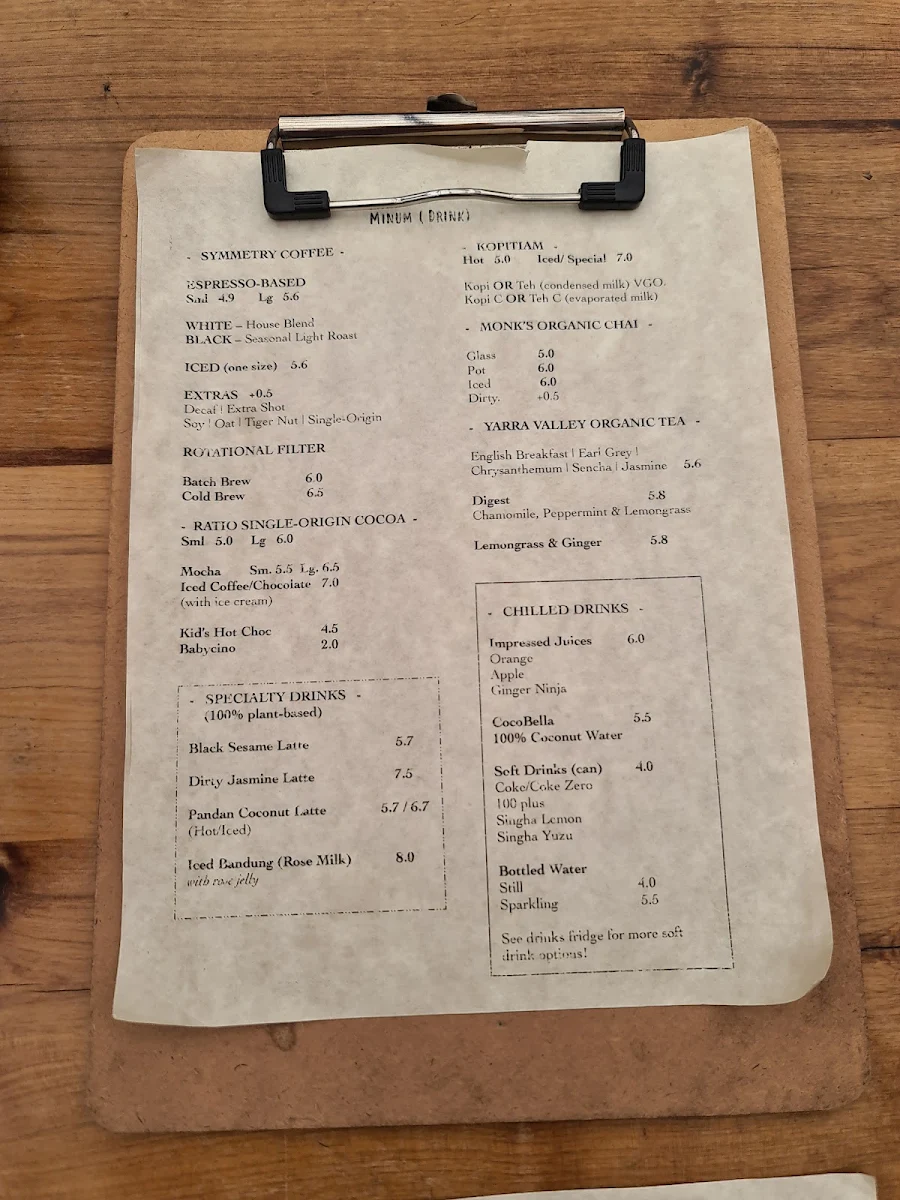 MINUM (DRINK)
- SYMMETRY COFFEE -
ESPRESSO-BASED
Sml 4.9 Lg 5.6
WHITE – House Blend
BLACK – Seasonal Light Roast
ICED (one size) 5.6
EXTRAS +0.5
Decaf | Extra Shot
Soy | Oat | Tiger Nut | Single-Origin
ROTATIONAL FILTER
Batch Brew 6.0
Cold Brew 6.5
- RATIO SINGLE-ORIGIN COCOA -
Sml 5.0 Lg 6.0
Mocha Sm. 5.5 Lg. 6.5
Iced Coffee/Chocolate 7.0
(with ice cream)
Kid's Hot Choc 4.5
Babycino 2.0
- SPECIALTY DRINKS -
(100% plant-based)
Black Sesame Latte 5.7
Dirty Jasmine Latte 7.5
Pandan Coconut Latte 5.7 / 6.7
(Hot/Iced)
Iced Bandung (Rose Milk) 8.0
with rose jelly
- KOPITIAM -
Hot 5.0 Iced/ Special 7.0
Kopi OR Teh (condensed milk) VGO.
Kopi C OR Teh C (evaporated milk)
- MONK'S ORGANIC CHAI -
Glass 5.0
Pot 6.0
Iced 6.0
Dirty. +0.5
- YARRA VALLEY ORGANIC TEA -
English Breakfast | Earl Grey |
Chrysanthemum | Sencha | Jasmine 5.6
Digest 5.8
Chamomile, Peppermint & Lemongrass
Lemongrass & Ginger 5.8
- CHILLED DRINKS -
Impressed Juices 6.0
Orange
Apple
Ginger Ninja
CocoBella 5.5
100% Coconut Water
Soft Drinks (can) 4.0
Coke/Coke Zero
100 plus
Singha Lemon
Singha Yuzu
Bottled Water
Still 4.0
Sparkling 5.5
See drinks fridge for more soft
drink options!